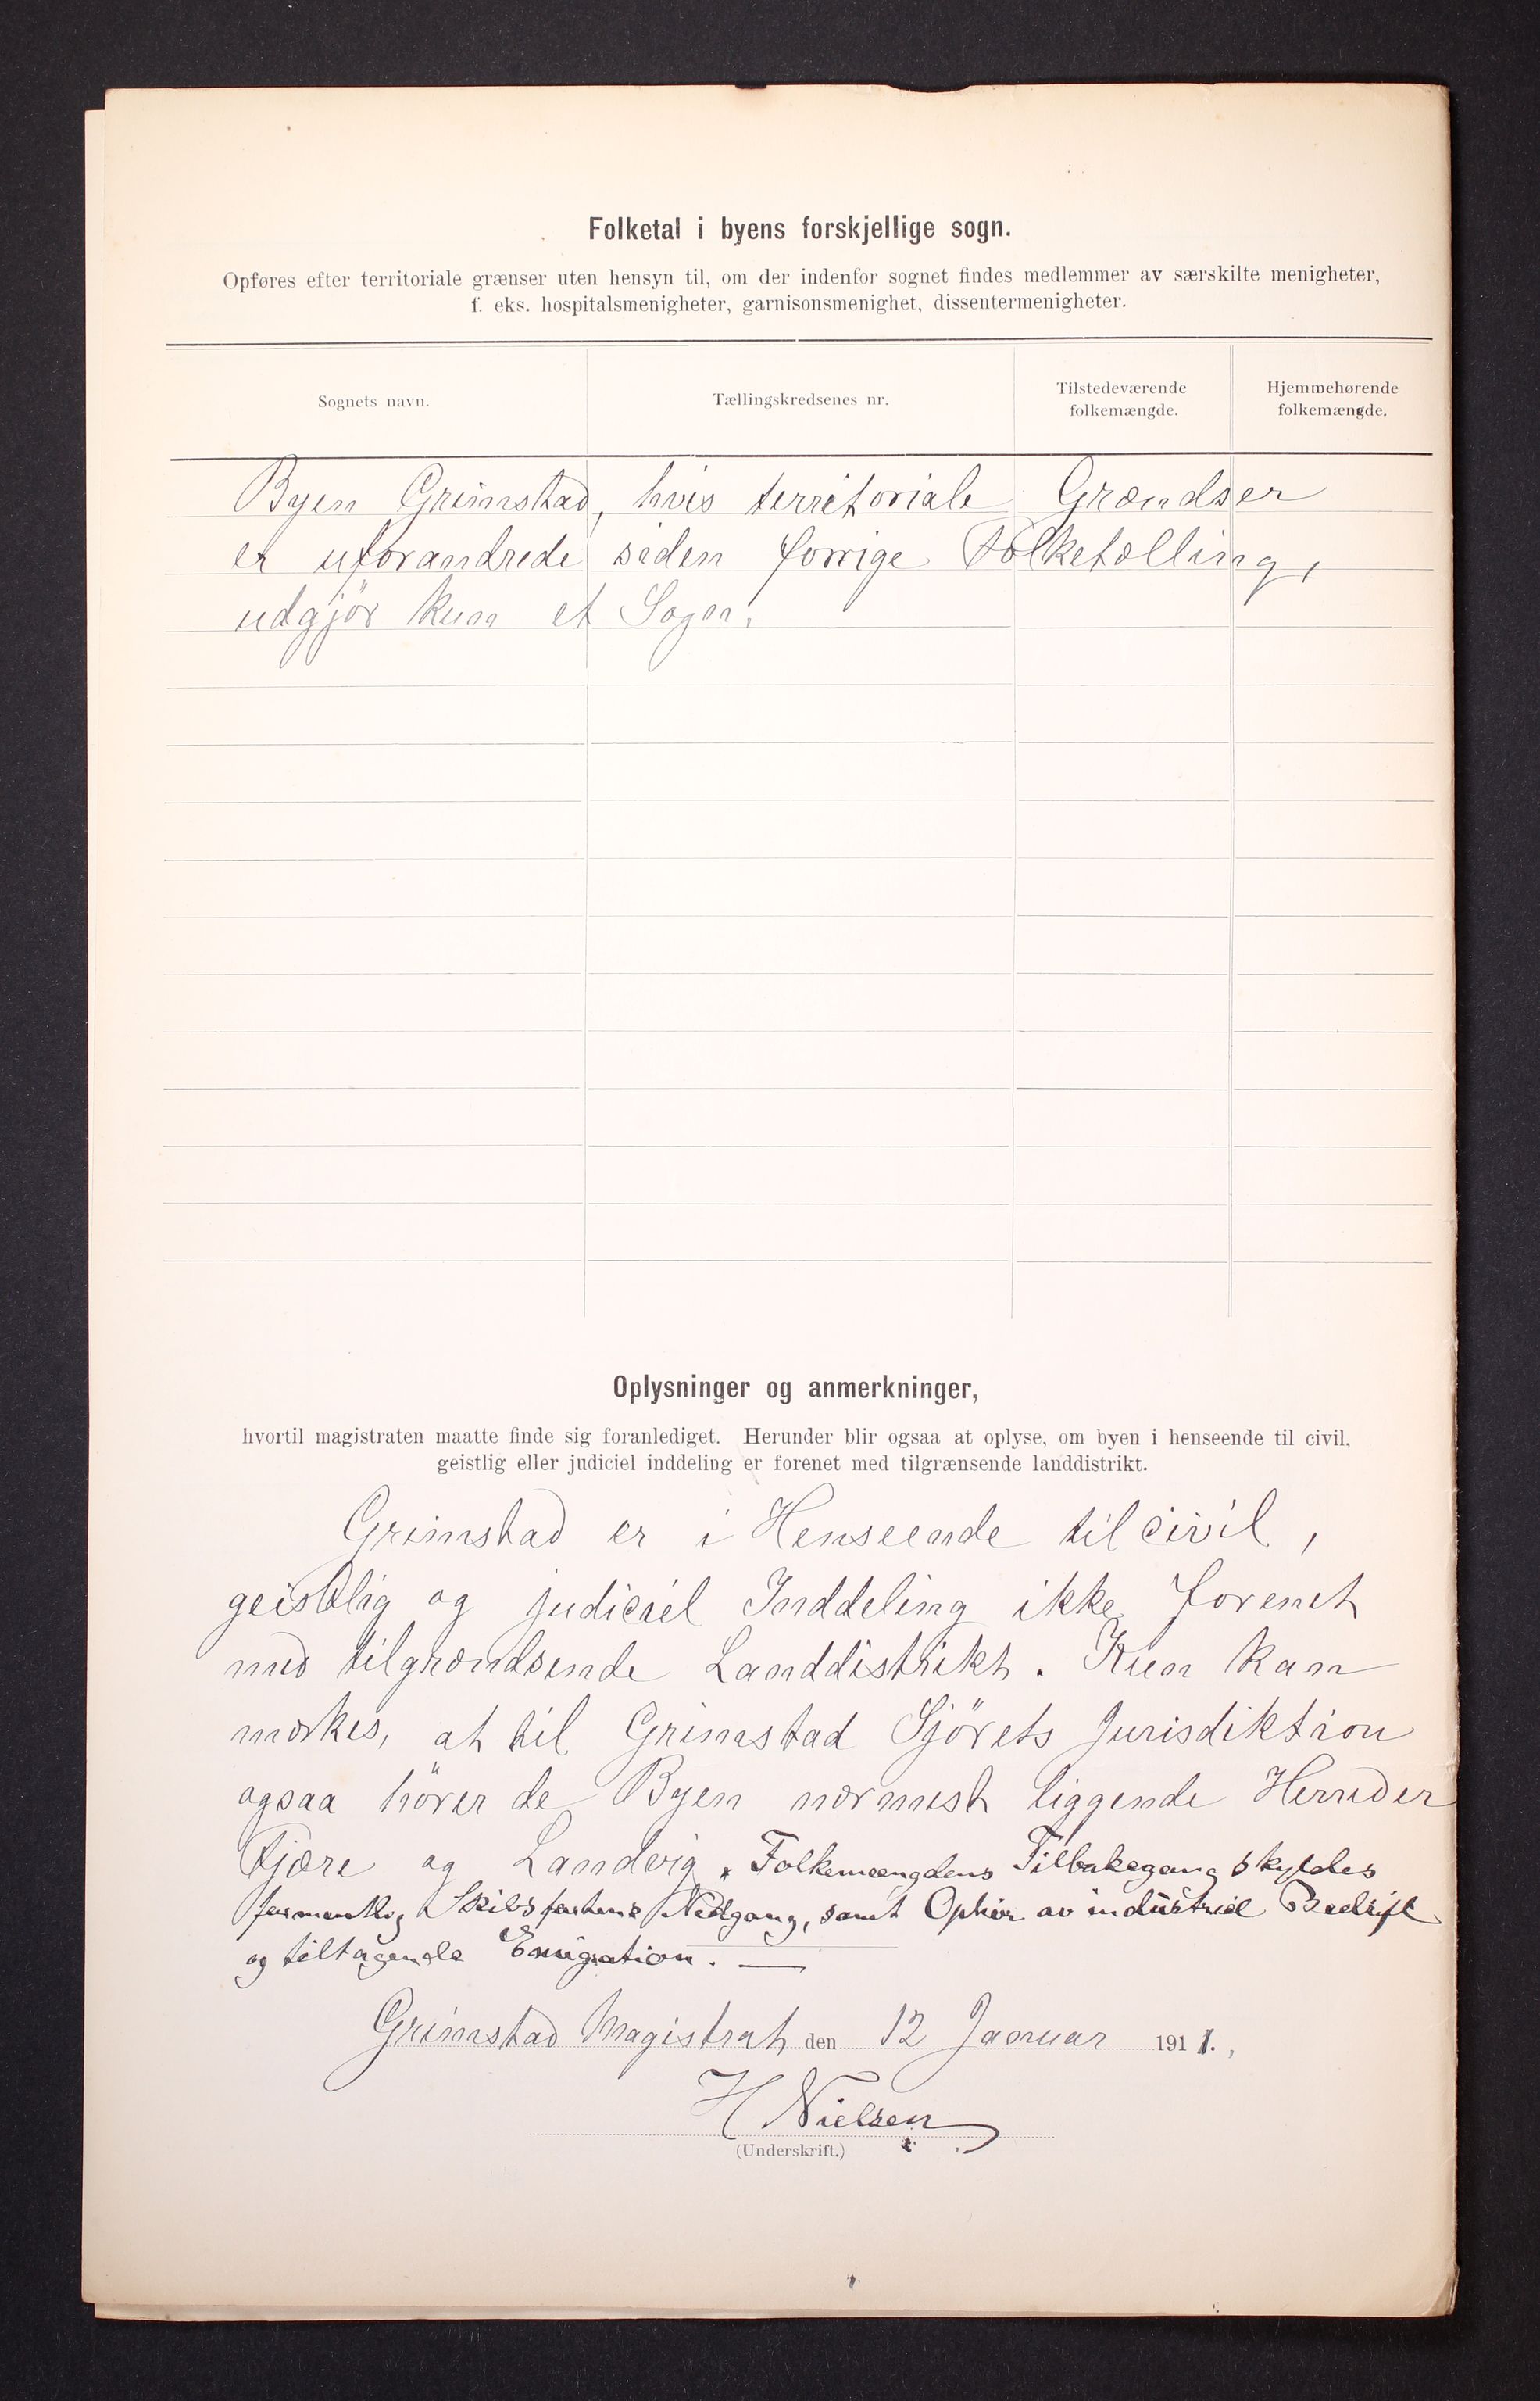 Folketal i byens forskjellige sogn.
Opføres efter territoriale grænser uten hensyn til, om der indenfor sognet findes medlemmer av særskilte menigheter,
f. eks. hospitalsmenigheter, garnisonsmenighet, dissentermenigheter.
Sognets navn.
Tællingskredsenes nr.
Tilstedeværende
folkemængde.
Hjemmehørende
folkemængde.
Byen Grimstad, hvis territoriale Grændser
er uforandrede siden forrige Folketælling,
udgjör kun et Sogn.
Oplysninger og anmerkninger,
hvortil magistraten maatte finde sig foranlediget. Herunder blir ogsaa at oplyse, om byen i henseende til civil,
geistlig eller judiciel inddeling er forenet med tilgrænsende landdistrikt.
Grimstad er i Henseende til civil,
geistlig og judiciel Inddeling ikke forenet
med tilgrændsende Landdistrikt. Kun kan
mærkes, at til Grimstad Sjörets Jurisdiktion
ogsaa hörer de Byen nærmest liggende Herreder
Fjære og Landvig. Folkemængdens Tilbakegang skyldes
formentlig Skibsfartens Nedgang, samt Ophör av industriel Bedrift
og tiltagende Emigration. —
Grimstad Magistrat den 12 Januar 1911.
H Nielsen
(Underskrift.)